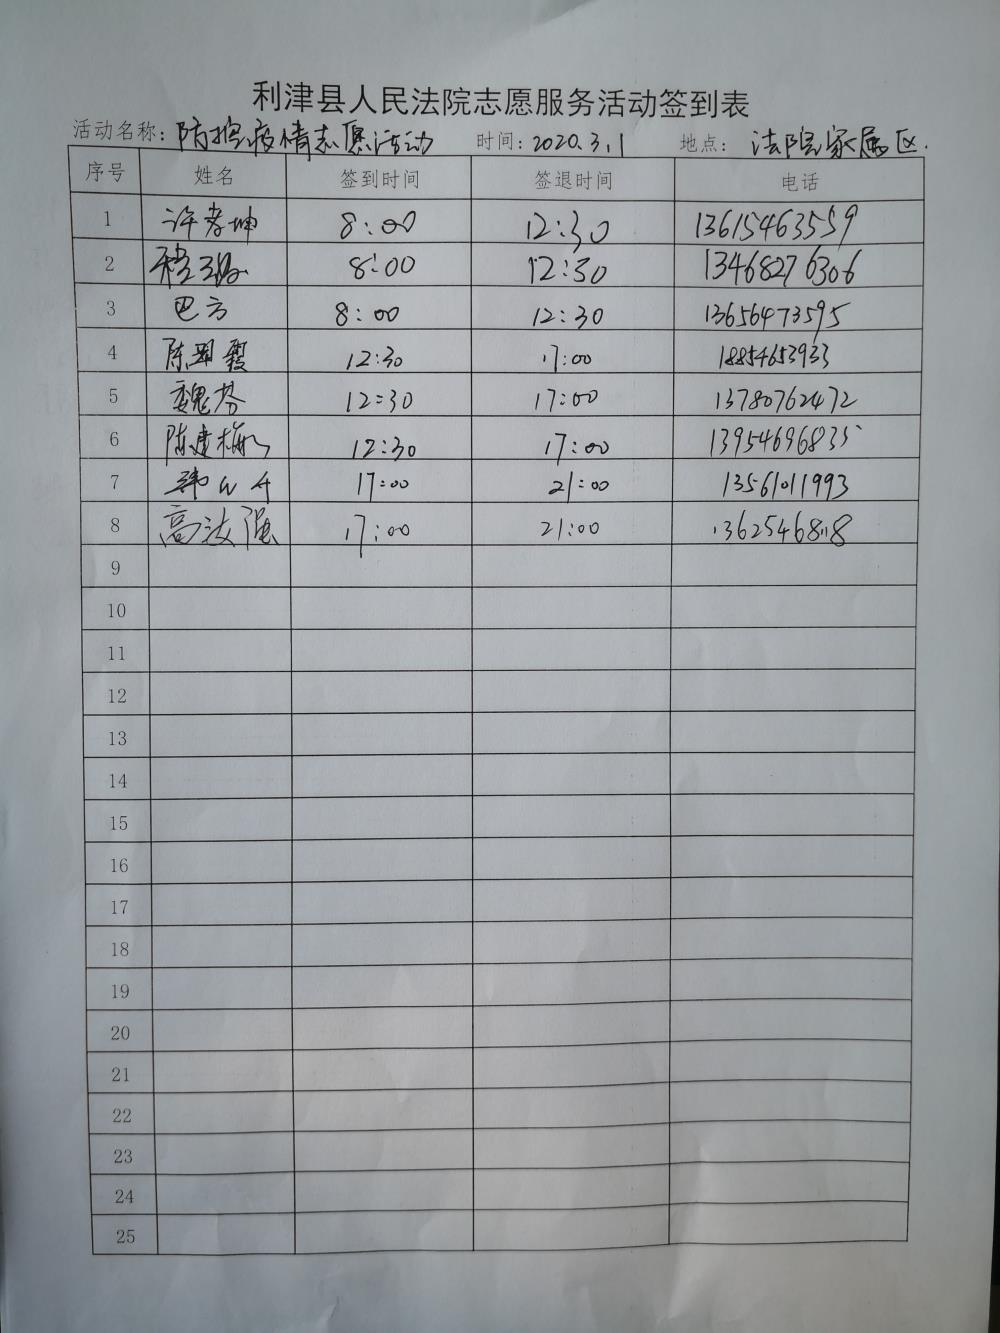 利津县人民法院志愿服务活动签到表
活动名称: 防控疫情志愿活动 时间: 2020.3.1 地点: 法院家属区.
序号 姓名 签到时间 签退时间 电话
1 许孝坤 8:00 12:30 13615463559
2 8:00 12:30 13468276306
3 巴方 8:00 12:30 13656473595
4 陈翠霞 12:30 17:00 18854653933
5 魏芬 12:30 17:00 13780762472
6 陈建梅 12:30 17:00 13954696835
7 17:00 21:00 13561011993
8 高波强 17:00 21:00 13625468118
9
10
11
12
13
14
15
16
17
18
19
20
21
22
23
24
25